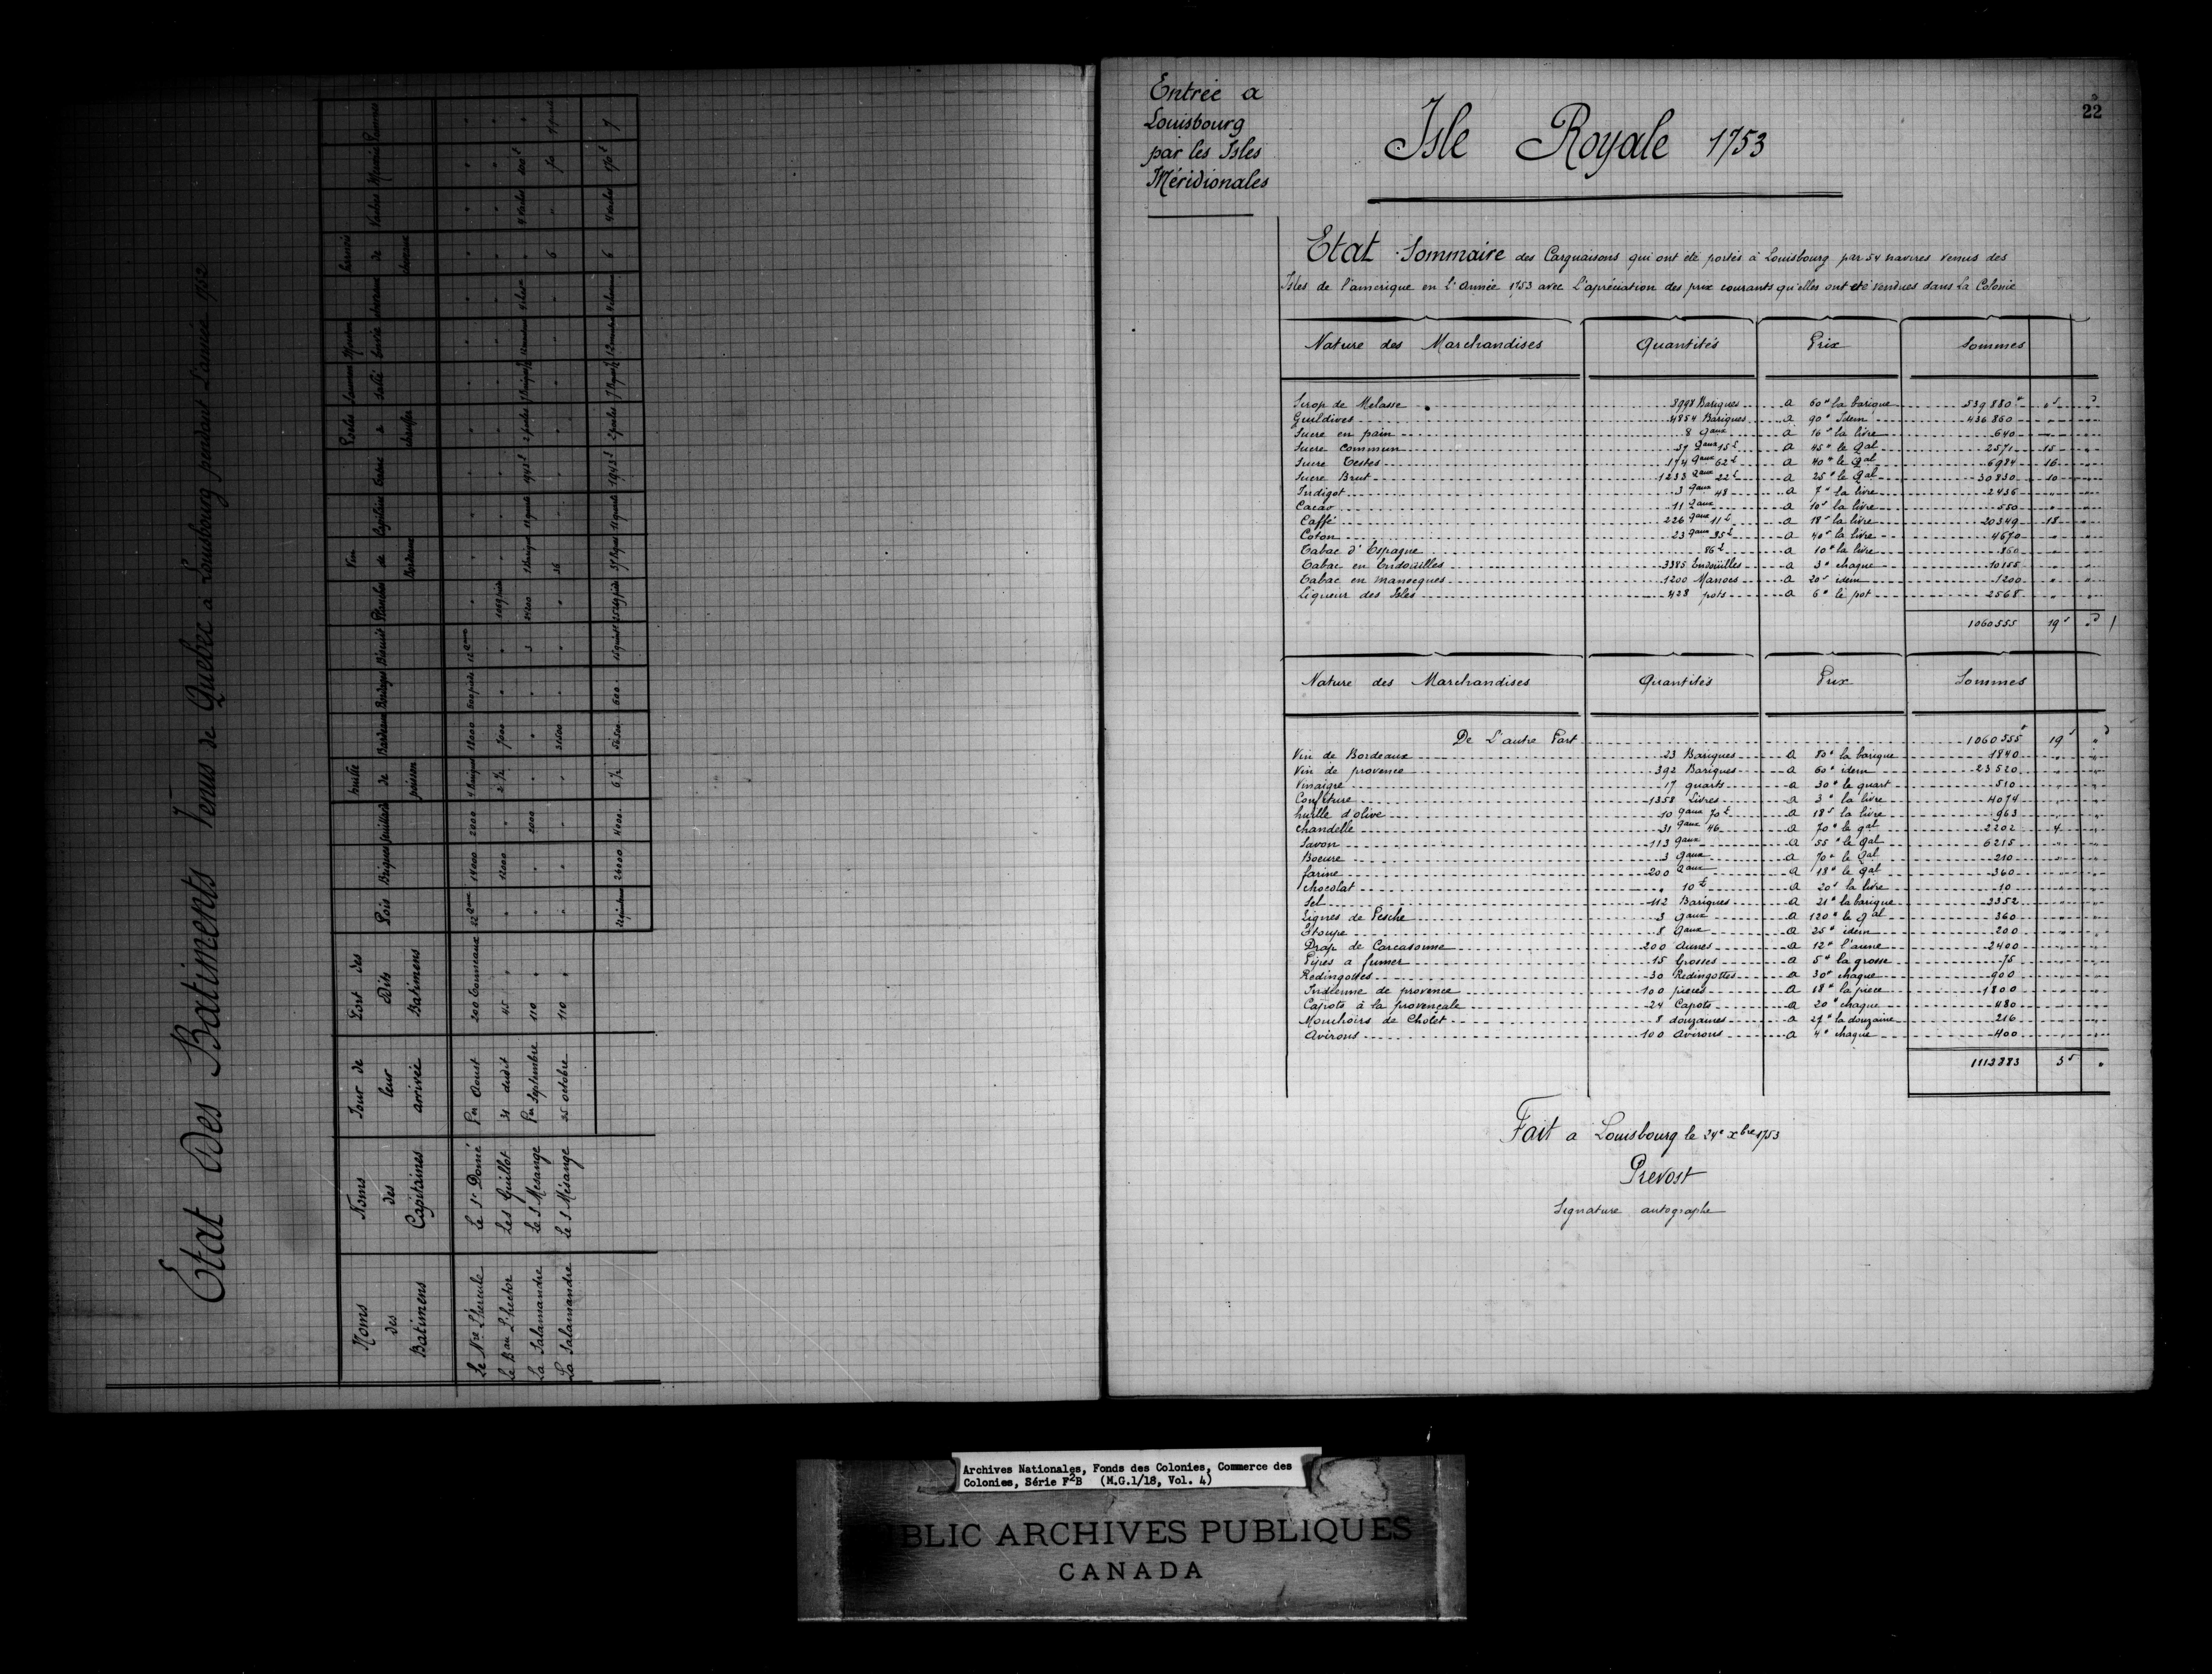 Etat Des Batiments Venus de Quebec a Louisbourg pendant L'année 1752
Noms des Batimens | Noms des Capitaines | Jour de leur arrivée | Port des Dits Batimens | Pois | Briques | feuillard | huille de poisson | Bardeaux | Bordages | Biscuit | Planches | Vin de Bordeaux | | | | Saumon Sallé | Mouton | chevreux | harnois de chevaux | Vaches | |
Le Nre L'hercule | Le Sr Donié | Pr Aoust | 200 tonneaux | 22 qaux | 14000 | 2000 | 4 Bariques | 18000 | 600 pieds | 12 qaux | " | " | " | " | " | " | " | " | " | " | " | "
Le Bau L'hector | Les Guillot | 31 dudit | 45 " | " | 12000 | " | 2 ½ | 7000 | " | " | 1059 pieds | " | " | " | " | " | " | " | " | " | " | "
La Salamandre | Le S Mesange | Pr Septembre | 110 " | " | " | 2000 | " | " | " | 3 | 24200 | 1 Barique | 11 quarts | 1943 £ | 2 poeles | | | | " | 4 Vaches | |
La Salamandre | le S Mésange | 25 octobre | 110 " | " | " | " | " | 31500 | " | " | " | 36 | " | " | " | " | " | " | 6 | " | 70 |
26000 | 4000 | 6 ½ | 56500 | 600 | | | | 11 quarts | 1943 £ | 2 poeles | | | | 6 | 4 Vaches | | 7
22
Entrée a
Louisbourg
par les Isles
Méridionales
Isle Royale 1753
Etat Sommaire des Carguaisons qui ont été portés à Louisbourg par 54 navires venus des
Isles de l'amerique en l'Année 1753 avec L'apréciation des prix courants qu'elles ont été vendues dans la Colonie
Nature des Marchandises | Quantités | Prix | Sommes
Sirop de Melasse | 8998 Bariques | a 60 # la barique | 539880 # | " s | " d
Guildives | 4854 Bariques | a 90 # Idem | 436860 | " | "
Sucre en pain | 8 qaux | a 16 s la livre | 640 | " | "
Sucre Commun | 57 qaux 15 £ | a 45 # le qal | 2571 | 15 | "
Sucre Testes | 174 qaux 62 £ | a 40 # le qal | 6984 | 16 | "
Sucre Brut | 1233 qaux 22 £ | a 25 # le qal | 30830 | 10 | "
Indigot | 3 qaux 48 | a 7 # la livre | 2436 | " | "
Cacao | 11 qaux | a 10 s la livre | 550 | " | "
Caffé | 226 qaux 11 £ | a 18 s la livre | 20349 | 18 | "
Coton | 23 qaux 35 £ | a 40 s la livre | 4670 | " | "
Tabac d'Espagne | 86 £ | a 10 # la livre | 860 | " | "
Tabac en Endouilles | 3385 Endouilles | a 3 # chaque | 10155 | " | "
Tabac en manocques | 1200 Manocs | a 20 s idem | 1200 | " | "
Liqueur des Isles | 428 pots | a 6 # le pot | 2568 | " | "
1060555 | 19 s | " d
Nature des Marchandises | Quantités | Prix | Sommes
De L'autre Part | 1060555 # | 19 s | " d
Vin de Bordeaux | 23 Bariques | a 80 # la barique | 1840 | " | "
Vin de provence | 392 Bariques | a 60 # idem | 23520 | " | "
Vinaigre | 17 quarts | a 30 # le quart | 510 | " | "
Confiture | 1358 Livres | a 3 # la livre | 4074 | " | "
huille d'olive | 10 qaux 70 £ | a 18 s la livre | 963 | " | "
chandelle | 31 qaux 46 | a 70 # le qal | 2202 | 4 | "
Savon | 113 qaux | a 55 # le qal | 6215 | " | "
Boeure | 3 qaux | a 70 # le qal | 210 | " | "
farine | 200 qaux | a 18 # le qal | 360 | " | "
chocolat | " 10 £ | a 20 s la livre | 10 | " | "
Sel | 112 Bariques | a 21 # la barique | 2352 | " | "
Lignes de Pesche | 3 qaux | a 120 # le qal | 360 | " | "
Etoupe | 8 qaux | a 25 # idem | 200 | " | "
Drap de Carcasonne | 200 Aunes | a 12 # l'aune | 2400 | " | "
Pipes a fumer | 15 Grosses | a 5 # la grosse | 75 | " | "
Redingottes | 30 Redingottes | a 30 # chaque | 900 | " | "
Indienne de provence | 100 pieces | a 18 # la piece | 1800 | " | "
Capots à la provençale | 24 Capots | a 20 # chaque | 480 | " | "
Mouchoirs de Cholet | 8 douzaines | a 27 # la douzaine | 216 | " | "
Avirons | 100 Avirons | a 4 # chaque | 400 | " | "
1112883 | 3 s | "
Fait a Louisbourg le 24e xbre 1753
Prevost
Signature autographe
Archives Nationales, Fonds des Colonies, Commerce des
Colonies, Série F2B (M.G.1/18, Vol. 4)
BLIC ARCHIVES PUBLIQUES
CANADA